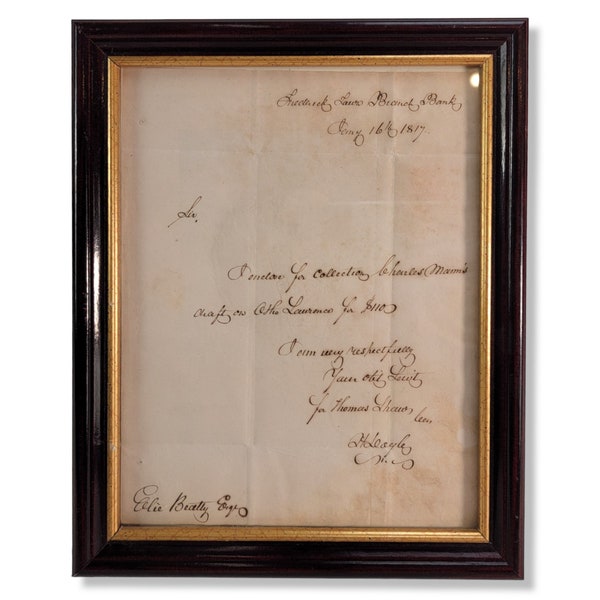 Frederick Town Branch Bank
Jany 16th 1817.
Sir,
I enclose for collection Charles Mann's
draft on Otho Lawrence for $110
I am very respectfully
Your obt Servt
for Thomas Shaw Cas.
H Doyle
Elie Beatty Esqr